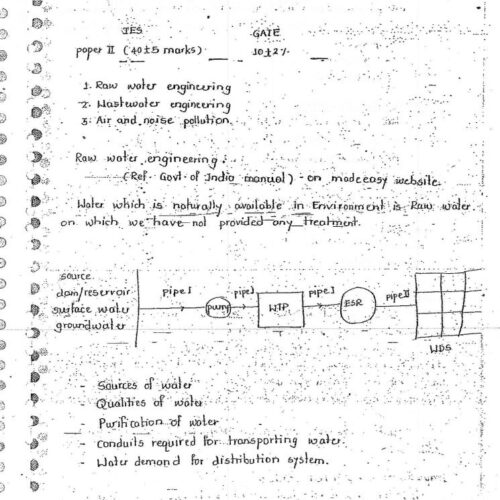 IES GATE
paper II (40±5 marks) 10±2%
1. Raw water engineering
2. Wastewater engineering
3. Air and noise pollution.
Raw water engineering:
(Ref. Govt. of India manual) - on madeeasy website.
Water which is naturally available in Environment is Raw water
on which we have not provided any treatment.
source
dam/reservoir
surface water
groundwater
pipe I pump pipe I WTP pipe I ESR pipe II
WDS
- Sources of water
- Qualities of water
- Purification of water
- Conduits required for transporting water.
- Water demand for distribution system.